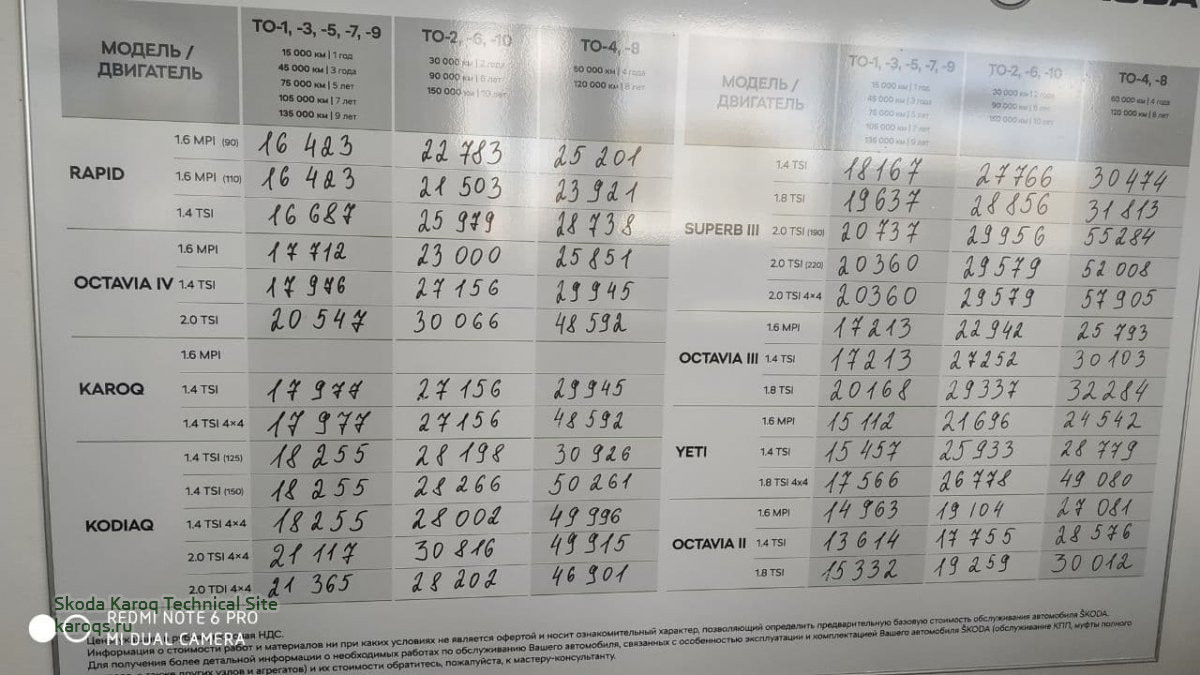 МОДЕЛЬ / ДВИГАТЕЛЬ
ТО-1, -3, -5, -7, -9
15 000 км | 1 год
45 000 км | 3 года
75 000 км | 5 лет
105 000 км | 7 лет
135 000 км | 9 лет
ТО-2, -6, -10
30 000 км | 2 года
90 000 км | 6 лет
150 000 км | 10 лет
ТО-4, -8
60 000 км | 4 года
120 000 км | 8 лет
RAPID
1.6 MPI (90) 16 423 22 783 25 201
1.6 MPI (110) 16 423 21 503 23 921
1.4 TSI 16 687 25 979 28 738
OCTAVIA IV
1.6 MPI 17 712 23 000 25 851
1.4 TSI 17 976 27 156 29 945
2.0 TSI 20 547 30 066 48 592
KAROQ
1.6 MPI
1.4 TSI 17 977 27 156 29 945
1.4 TSI 4×4 17 977 27 156 48 592
KODIAQ
1.4 TSI (125) 18 255 28 198 30 926
1.4 TSI (150) 18 255 28 266 50 261
1.4 TSI 4×4 18 255 28 002 49 996
2.0 TSI 4×4 21 117 30 816 49 915
2.0 TDI 4×4 21 365 28 202 46 901
МОДЕЛЬ / ДВИГАТЕЛЬ
ТО-1, -3, -5, -7, -9
15 000 км | 1 год
45 000 км | 3 года
75 000 км | 5 лет
105 000 км | 7 лет
135 000 км | 9 лет
ТО-2, -6, -10
30 000 км | 2 года
90 000 км | 6 лет
150 000 км | 10 лет
ТО-4, -8
60 000 км | 4 года
120 000 км | 8 лет
SUPERB III
1.4 TSI 18167 27766 30474
1.8 TSI 19637 28856 31813
2.0 TSI (190) 20737 29956 55284
2.0 TSI (220) 20360 29579 52 008
2.0 TSI 4×4 20360 29579 57905
OCTAVIA III
1.6 MPI 17213 22942 25 793
1.4 TSI 17213 27252 30103
1.8 TSI 20168 29337 32284
YETI
1.6 MPI 15 112 21696 24542
1.4 TSI 15 457 25933 28 779
1.8 TSI 4x4 17 566 26778 49 080
OCTAVIA II
1.6 MPI 14 963 19104 27 081
1.4 TSI 13 614 17 755 28 576
1.8 TSI 15332 19259 30 012
НДС.
Информация о стоимости работ и материалов ни при каких условиях не является офертой и носит ознакомительный характер, позволяющий определить предварительную базовую стоимость обслуживания автомобиля ŠKODA.
Для получения более детальной информации о необходимых работах по обслуживанию Вашего автомобиля, связанных с особенностью эксплуатации и комплектацией Вашего автомобиля ŠKODA (обслуживание КПП, муфты полного
также других узлов и агрегатов) и их стоимости обратитесь, пожалуйста, к мастеру-консультанту.
Skoda Karoq Technical Site
karoqs.ru
REDMI NOTE 6 PRO
MI DUAL CAMERA